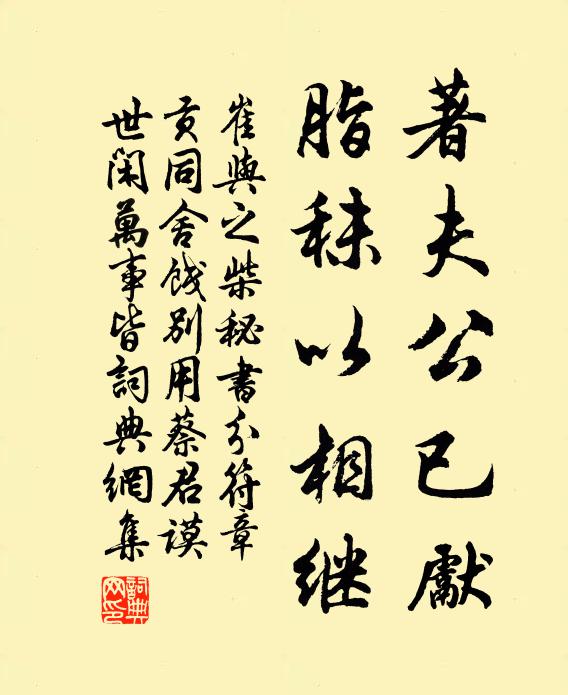 著夫公已獻
脂秣以相继
崔與之柴秘書分符章
贡同舍餞别用蔡君謨
世閑萬事皆詞典網集
詞典网印